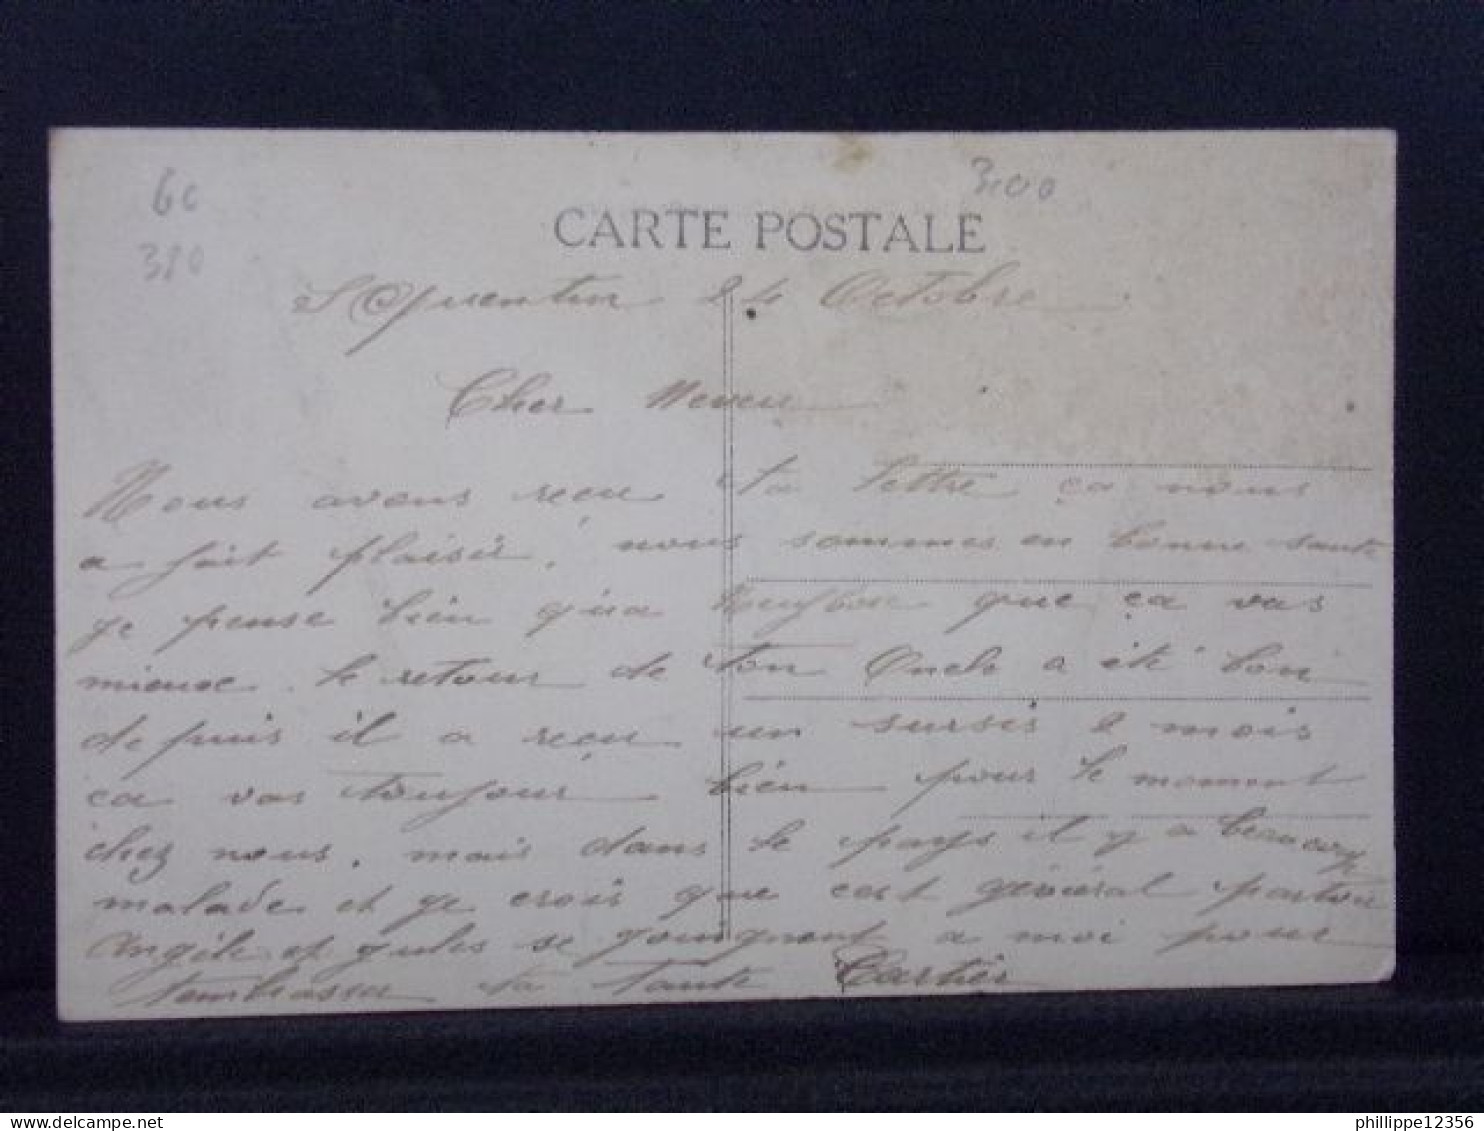 60
380
3,00
CARTE POSTALE
St Quentin 24 Octobre
Cher Neveu
Nous avons reçu ta lettre ça nous
a fait plaisir, nous sommes en bonne santé
je pense bien qu'a que ça vas
mieux. le retour de ton Oncle a été bon
depuis il a reçu un sursis 2 mois
ça vas toujour bien pour le moment
chez nous. mais dans le pays il y a beaucoup
malade et je crois que cest général partou
Angèle et Jules se jouignent a moi pour
tembrasser ta tante Cartier
phillippe12356